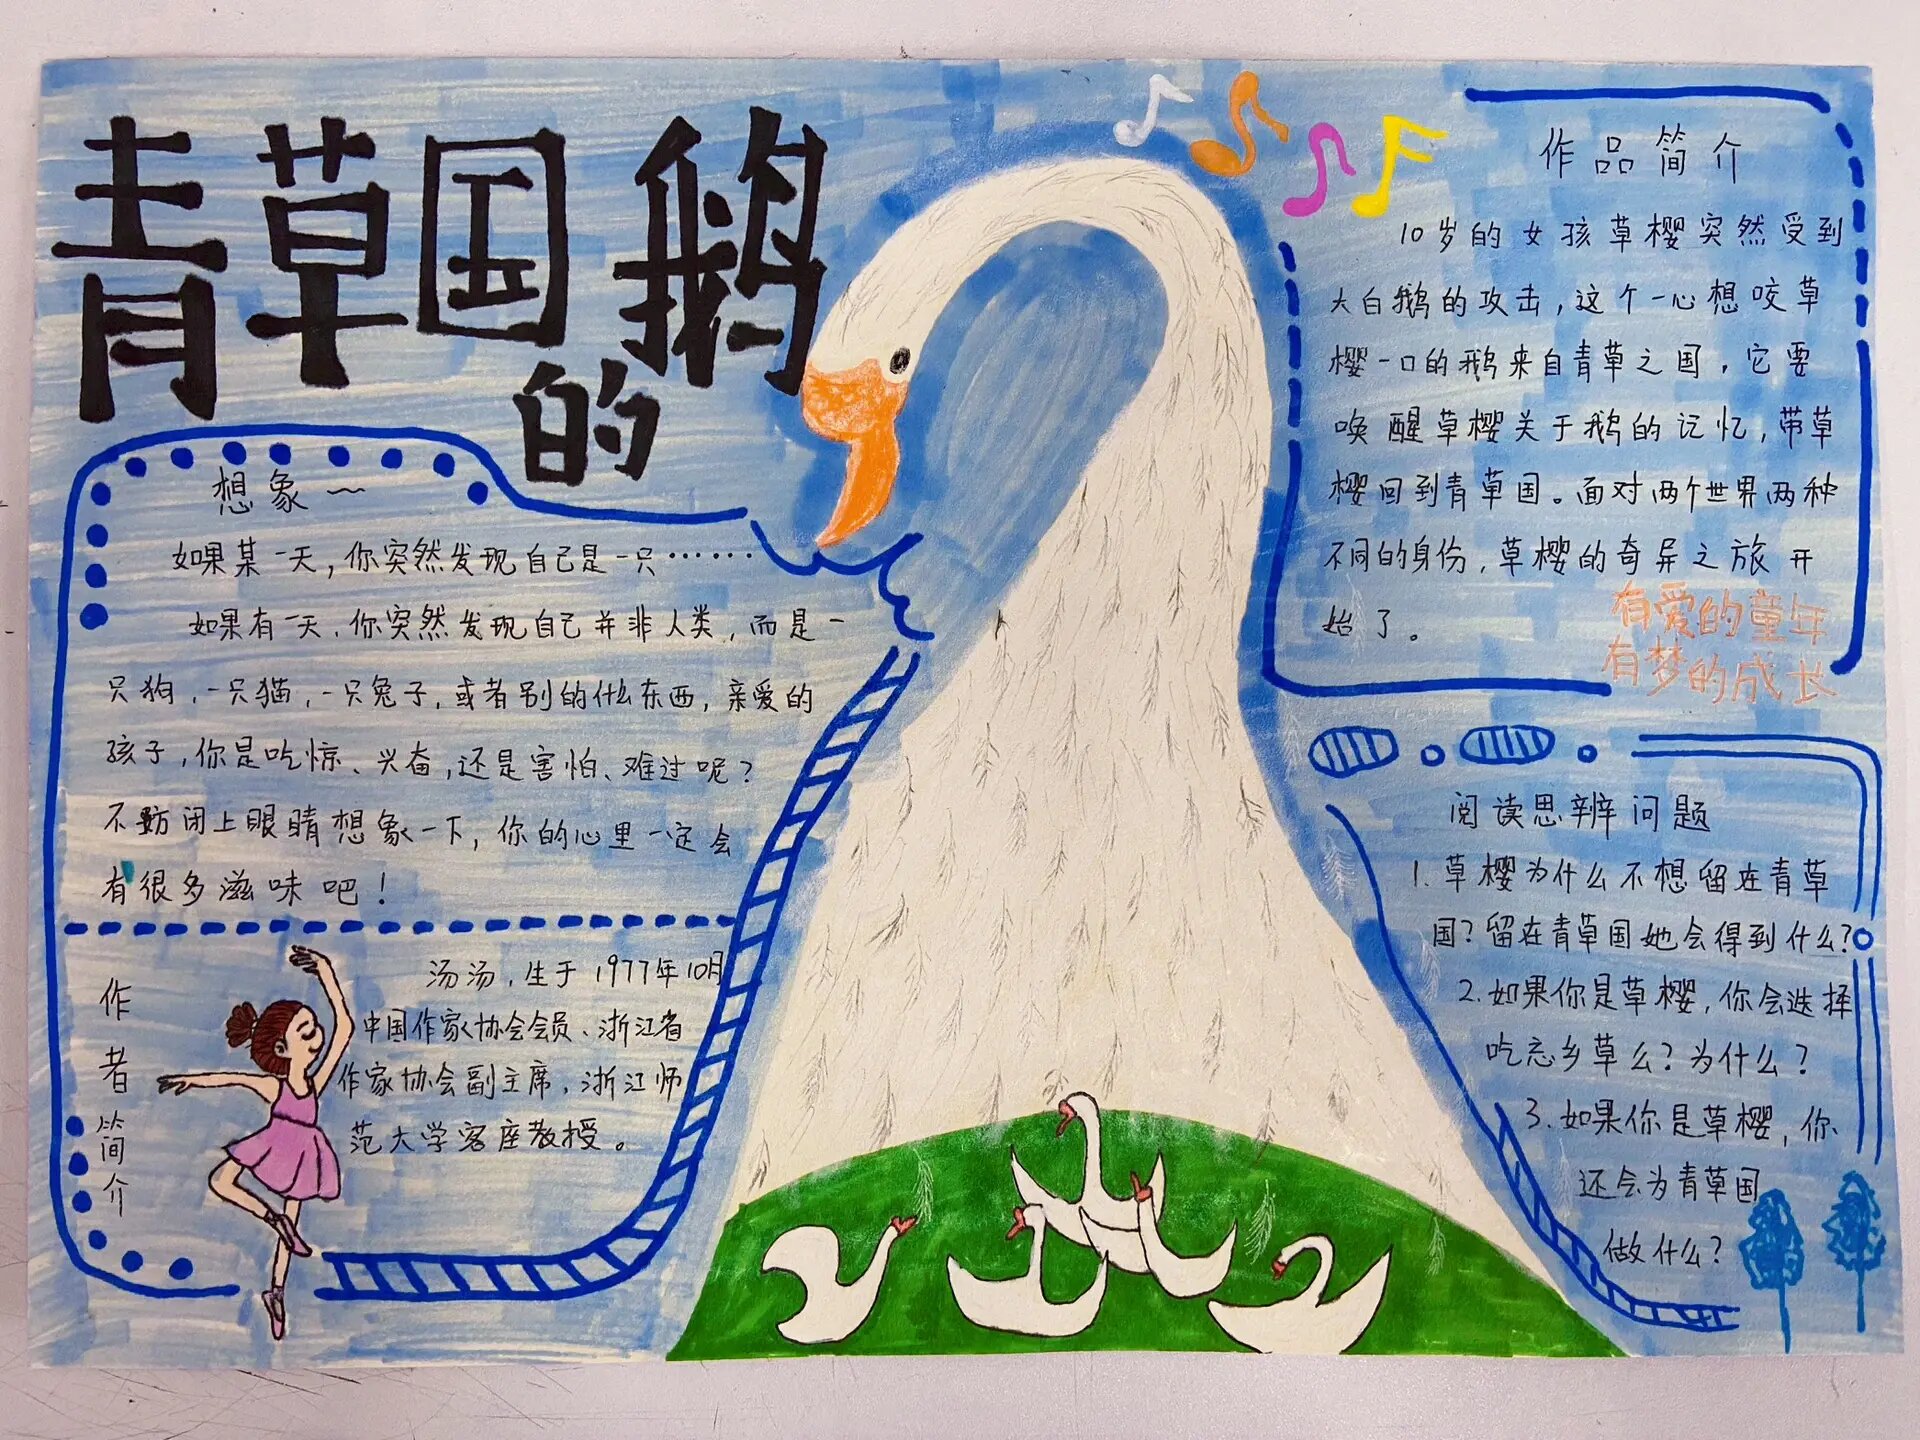 青草国的鹅
想象～
如果某一天，你突然发现自己是一只……
如果有一天，你突然发现自己并非人类，而是一
只狗，一只猫，一只兔子，或者别的什么东西，亲爱的
孩子，你是吃惊、兴奋，还是害怕、难过呢？
不妨闭上眼睛想象一下，你的心里一定会
有很多滋味吧！
作者简介
汤汤，生于1977年10月
中国作家协会会员、浙江省
作家协会副主席，浙江师
范大学客座教授。
作品简介
10岁的女孩草樱突然受到
大白鹅的攻击，这个一心想咬草
樱一口的鹅来自青草之国，它要
唤醒草樱关于鹅的记忆，带草
樱回到青草国。面对两个世界两种
不同的身份，草樱的奇异之旅开
始了。
有爱的童年
有梦的成长
阅读思辨问题
1.草樱为什么不想留在青草
国？留在青草国她会得到什么？
2.如果你是草樱，你会选择
吃忘乡草么？为什么？
3.如果你是草樱，你
还会为青草国
做什么？